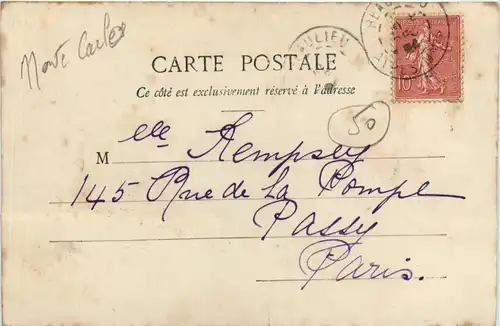 Monte Carlo
BEAULIEU
CARTE POSTALE
Ce côté est exclusivement réservé à l'adresse
50
10
M elle Kempsey
145 Rue de La Pompe
Passy
Paris.